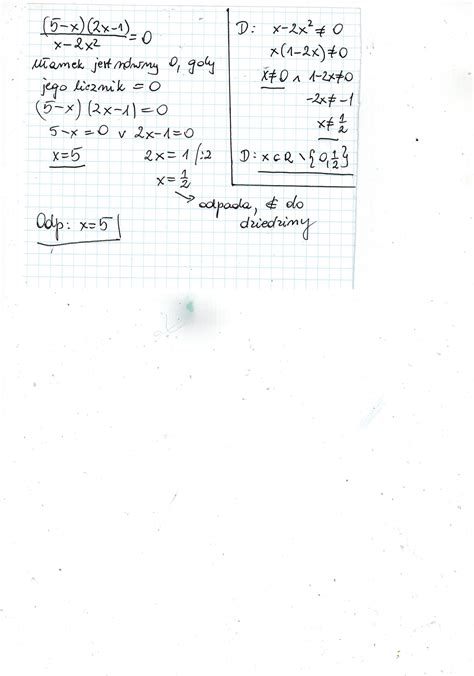 (5-x)(2x-1)
x-2x² =0
ułamek jest równy 0, gdy
jego licznik = 0
(5-x)(2x-1)=0
5-x=0 ∨ 2x-1=0
x=5 2x=1 /:2
x=1/2
→ odpada, ∉ do
dziedziny
Odp: x=5
D: x-2x²≠0
x(1-2x)≠0
x≠0 ∧ 1-2x≠0
-2x≠-1
x≠1/2
D: x∈R \ {0,1/2}